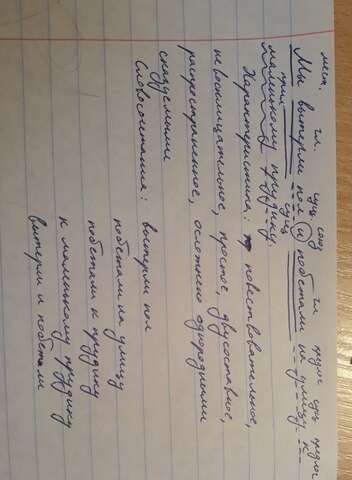 мест. гл. сущ союз гл предлог сущ предлог
Мы вытерли пол и побежали на улицу к
прил сущ
маленькому прудику.
Характеристика: повествовательное,
невосклицательное, простое, двусоставное,
распространенное, осложнено однородными
сказуемыми
Словосочетания: вытерли пол
побежали на улицу
побежали к прудику
к маленькому прудику
вытерли и побежали